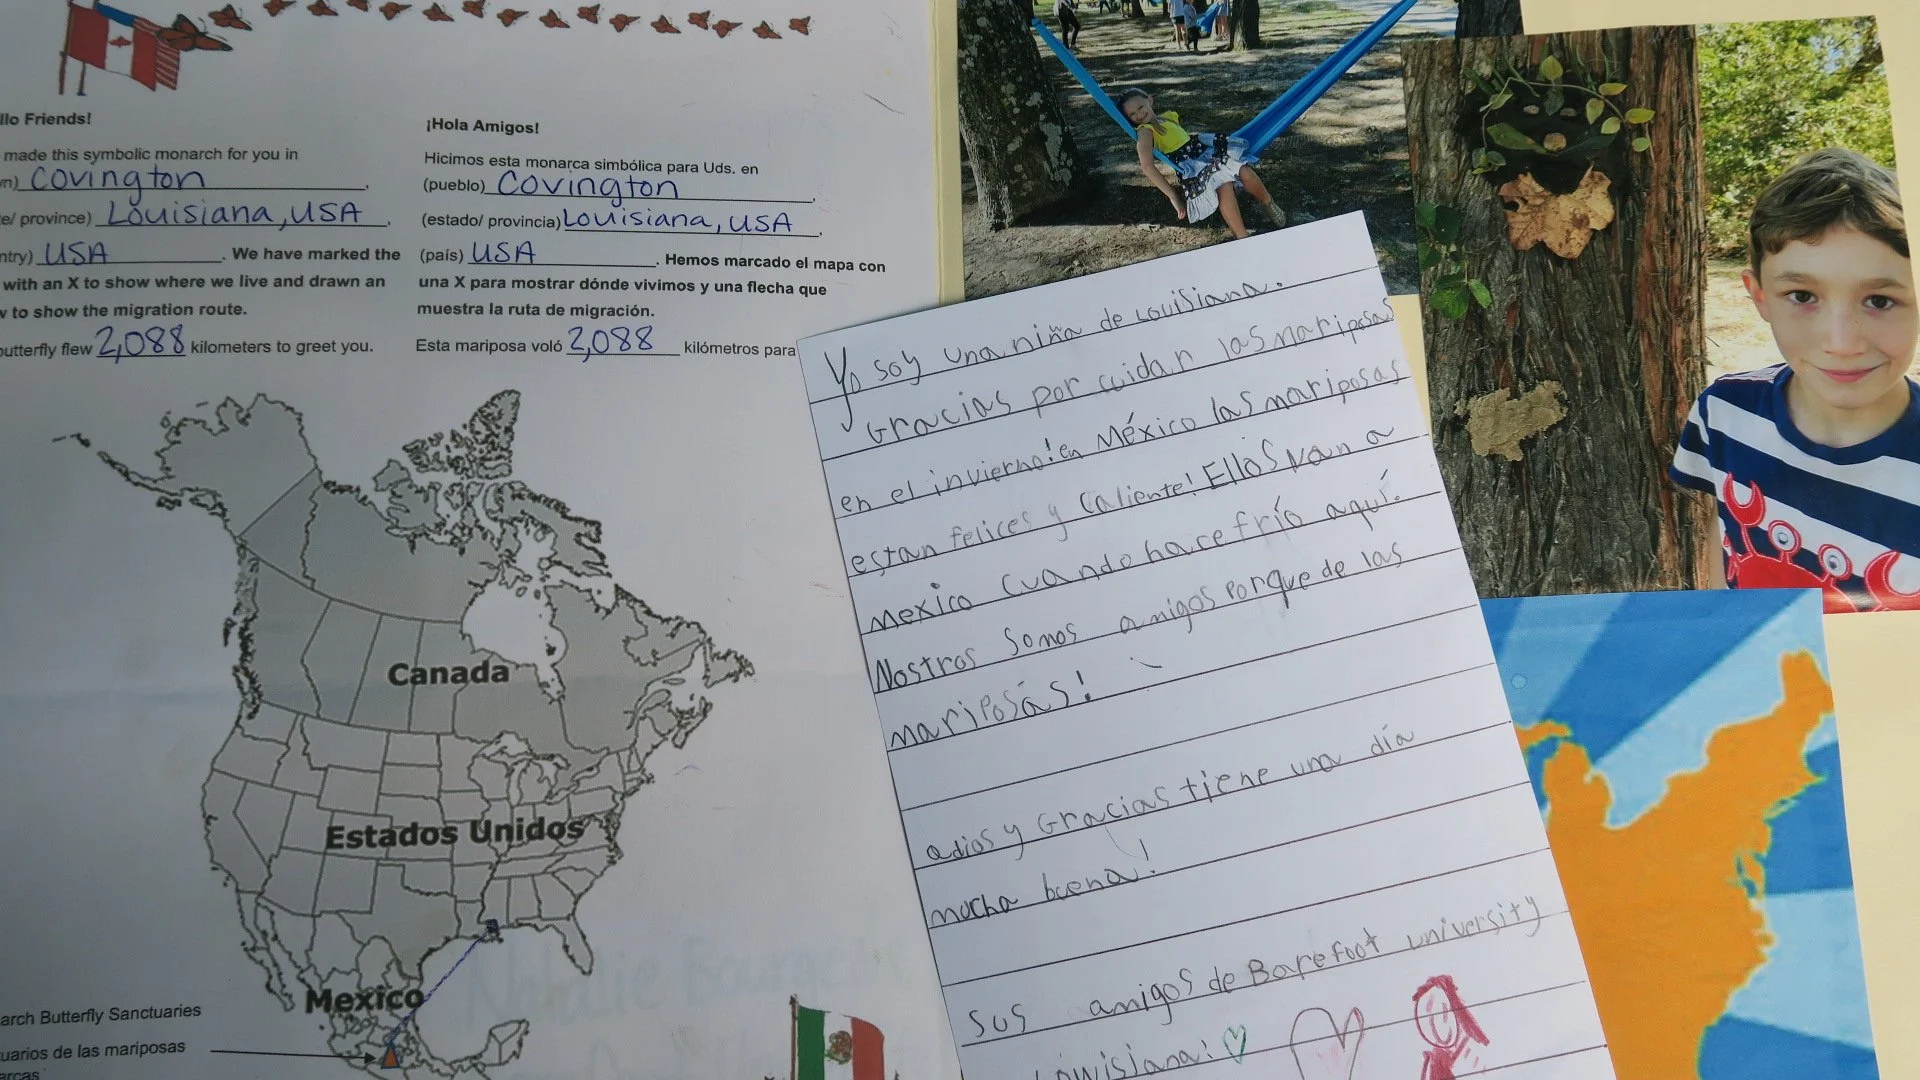 llo Friends!
made this symbolic monarch for you in
n) Covington,
e/ province) Louisiana, USA.
ntry) USA. We have marked the
with an X to show where we live and drawn an
w to show the migration route.
utterfly flew 2,088 kilometers to greet you.
¡Hola Amigos!
Hicimos esta monarca simbólica para Uds. en
(pueblo) Covington,
(estado/ provincia) Louisiana, USA,
(país) USA. Hemos marcado el mapa con
una X para mostrar dónde vivimos y una flecha que
muestra la ruta de migración.
Esta mariposa voló 2,088 kilómetros para
Canada
Estados Unidos
Mexico
arch Butterfly Sanctuaries
uarios de las mariposas
arcas
Yo soy una niña de Louisiana.
Gracias por cuidar las mariposas
en el invierno! en México las mariposas
estan felices y caliente! Ellos van a
mexico cuando hace frío aquí.
Nostros somos amigos porque de las
mariposas!
adios y Gracias tiene una día
mucha buena!
sus amigos de Barefoot university
Louisiana!